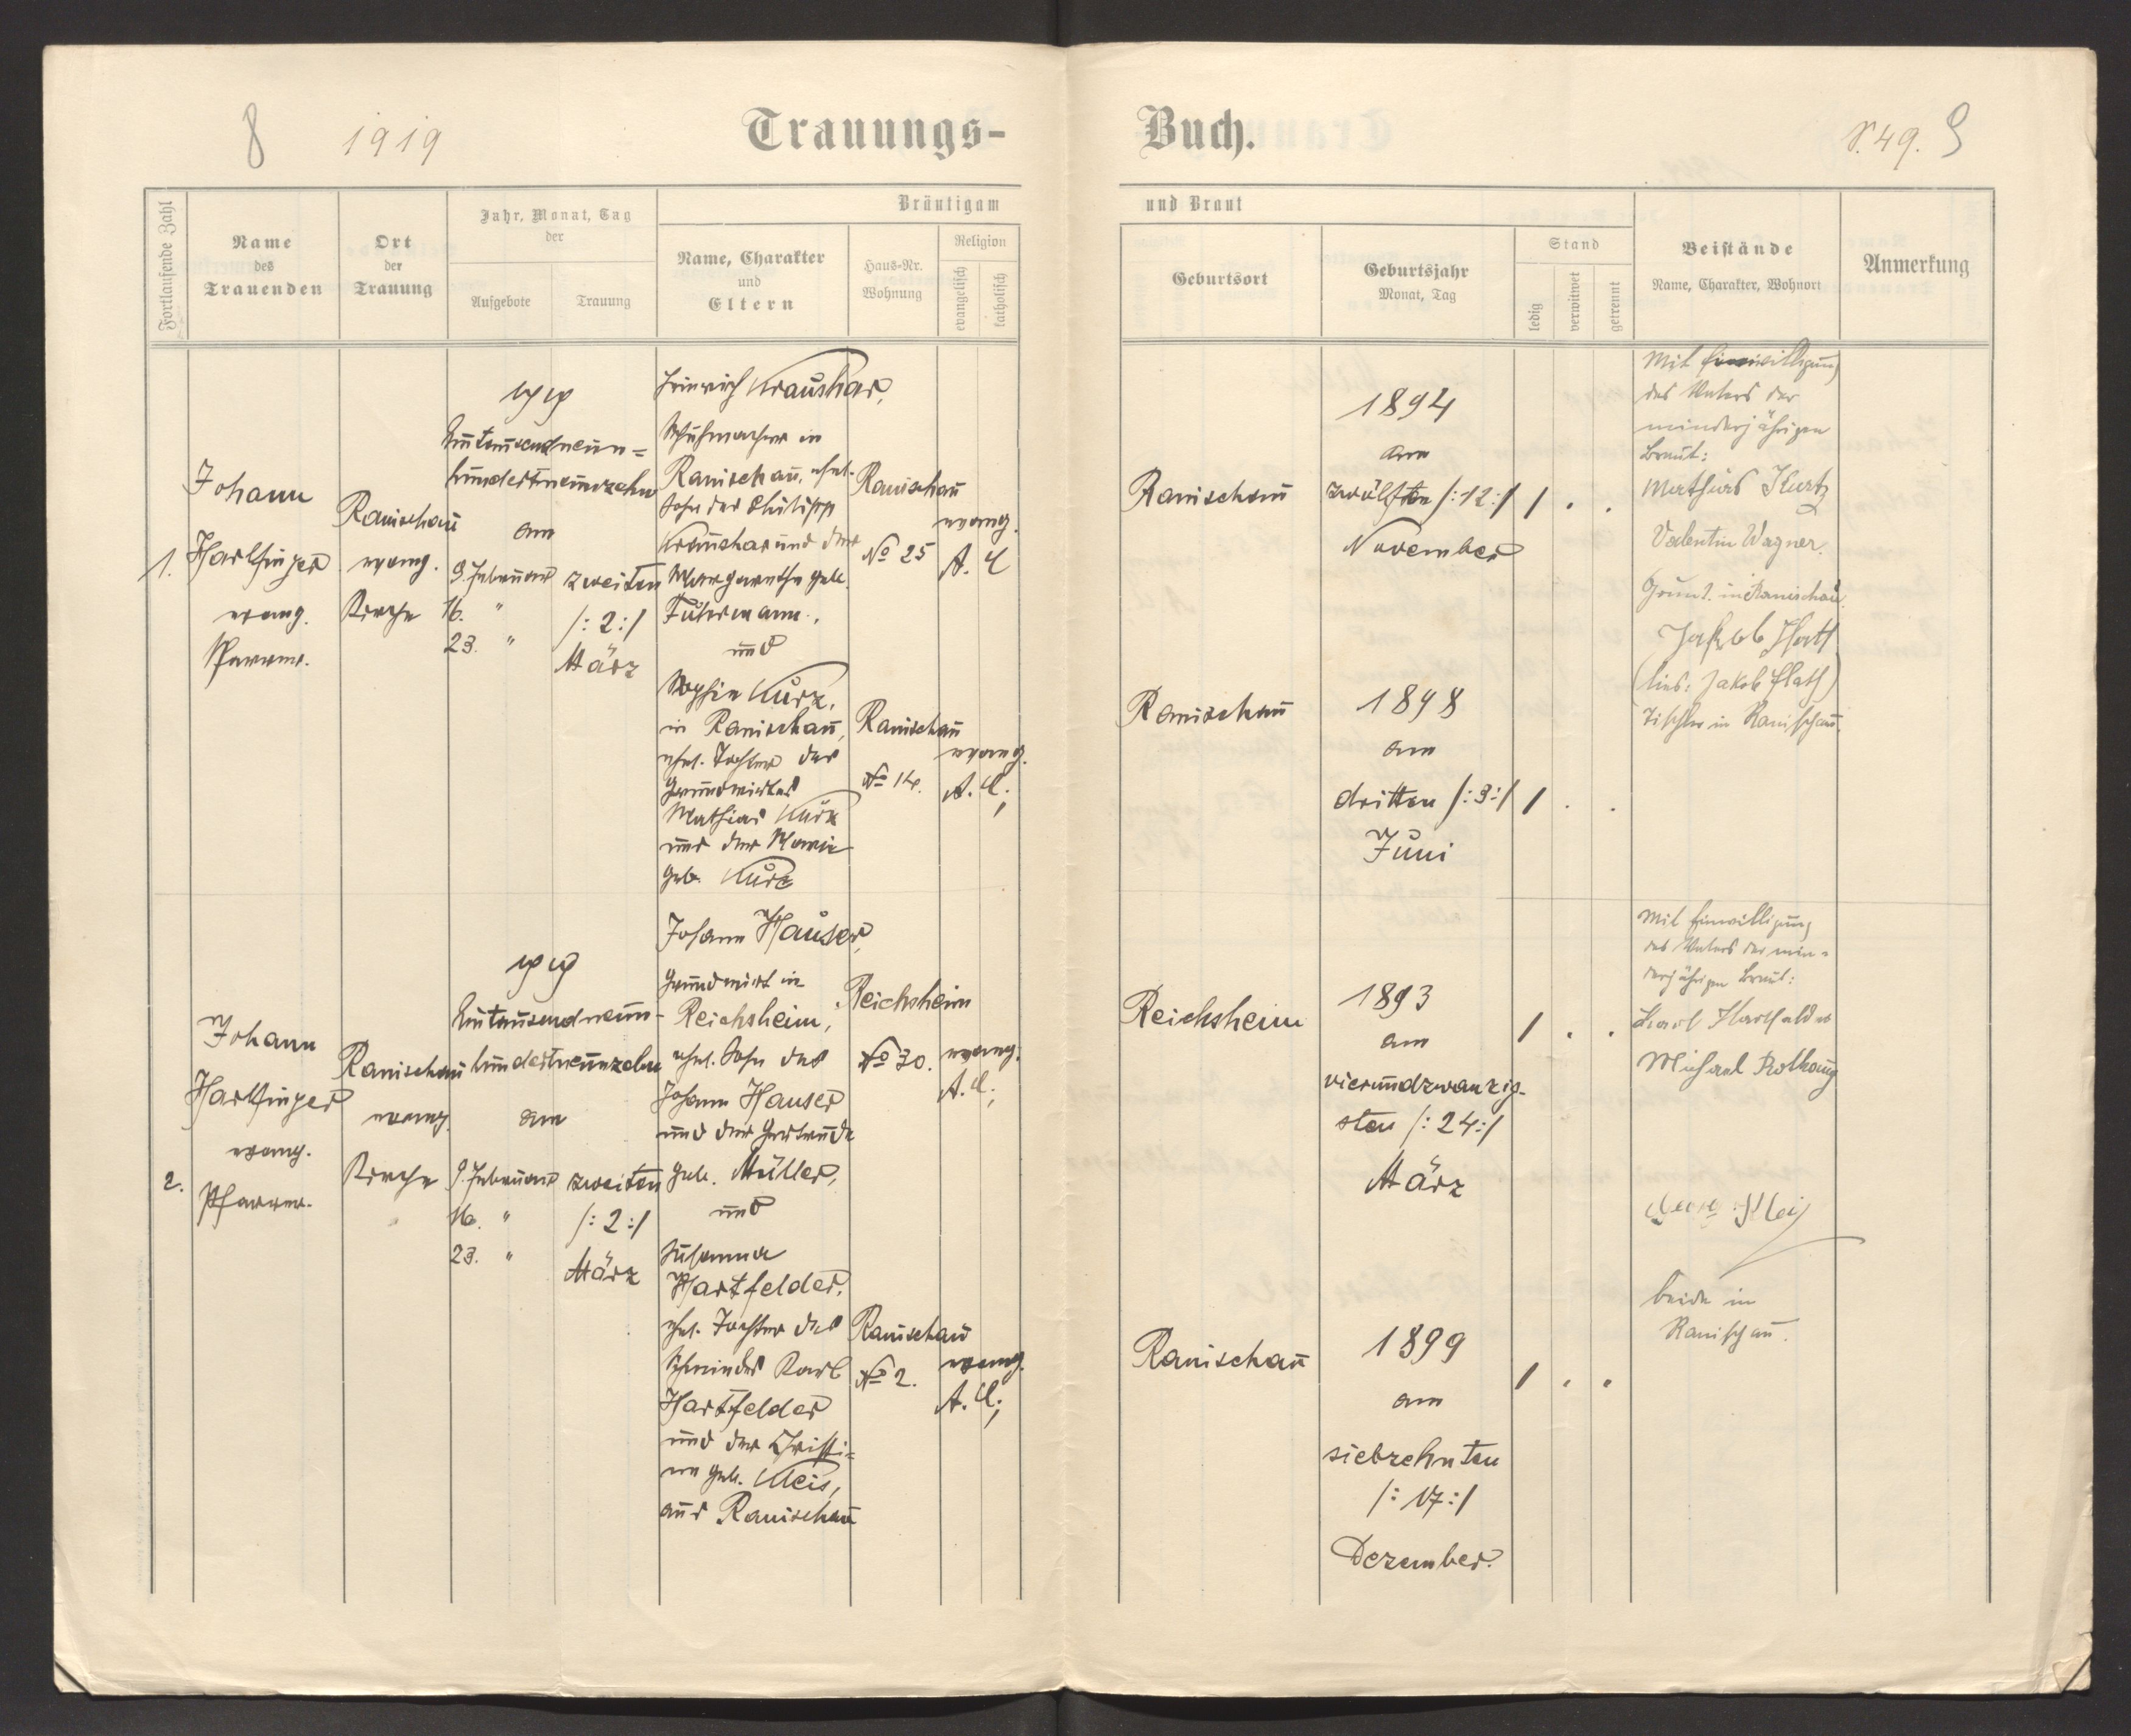 8 1919
Trauungs-
Buch.
S. 49. 9
Fortlaufende Zahl
Name
des
Trauenden
Ort
der
Trauung
Jahr, Monat, Tag
der
Aufgebote
Trauung
Bräutigam
Name, Charakter
und
Eltern
Haus-Nr.
Wohnung
Religion
evangelisch
katholisch
und Braut
Geburtsort
Geburtsjahr
Monat, Tag
Stand
ledig
verwitwet
getrennt
Beistände
Name, Charakter, Wohnort
Anmerkung
1.
Johann
Harlfinger
evang.
Pfarrer.
Ranischau
evang.
Kirche
1919
Eintausendneun=
hundertneunzehn
am
9. Februar
16. "
23. "
zweiten
/: 2 :/
März
Heinrich Kraushar,
Schuhmacher in
Ranischau, ehel.
Sohn des Philipp
Kraushar und der
Margaretha geb.
Fuhrmann,
und
Sophie Kurz,
in Ranischau,
ehel. Tochter des
Grundwirtes
Mathias Kurz
und der Marie
geb. Kurz
Ranischau
No 25
evang.
A. C
Ranischau
No 14.
evang.
A. C.;
Ranischau
1894
am
zwölften /: 12 :/
November
/ . .
Ranischau
1898
am
dritten /: 3 :/
Juni
/ . .
Mit Einwilligung
des Vaters der
minderjährigen
Braut:
Mathias Kurtz
Valentin Wagner.
Grundw. in Ranischau.
Jakob Flath
(lies: Jakob Flath)
Tischler in Ranischau.
2.
Johann
Harlfinger
evang.
Pfarrer.
Ranischau
evang.
Kirche
1919
Eintausendneun-
hundertneunzehn
am
9. Februar
16. "
23. "
zweiten
/: 2 :/
März
Johann Hauser,
Grundwirt in
Reichsheim,
ehel. Sohn des
Johann Hauser
und der Gertrude
geb. Müller,
und
Susanna
Hartfelder,
ehel. Tochter des
Schmiedes Karl
Hartfelder
und der Christi=
ne geb. Kleis,
aus Ranischau
Reichsheim
No 30.
evang.
A. C.;
Ranischau
No 2.
evang.
A. C.;
Reichsheim
1893
am
vierundzwanzig-
sten /: 24 :/
März
/ . .
Ranischau
1899
am
siebzehnten
/: 17 :/
Dezember.
/ . .
Mit Einwilligung
des Vaters der min=
derjährigen Braut:
Karl Hartfelder
Michael Rothaug
Georg Kleis
beide in
Ranischau.